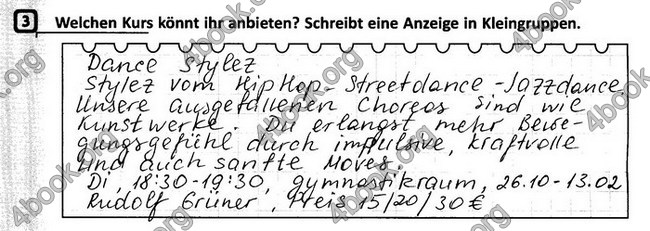 3 Welchen Kurs könnt ihr anbieten? Schreibt eine Anzeige in Kleingruppen.
Dance Stylez
Stylez vom Hip Hop - Streetdance - Jazzdance
Unsere ausgefallenen Choreos sind wie
Kunstwerke. Du erlangst mehr Bewe-
gungsgefühl durch impulsive, kraftvolle
und auch sanfte Moves.
Di, 18:30-19:30, gymnastikraum, 26.10-13.02
Rudolf Grüner, Preis 15/20/30 €
4book.org
4book.org
4book.org
4book.org
4book.org